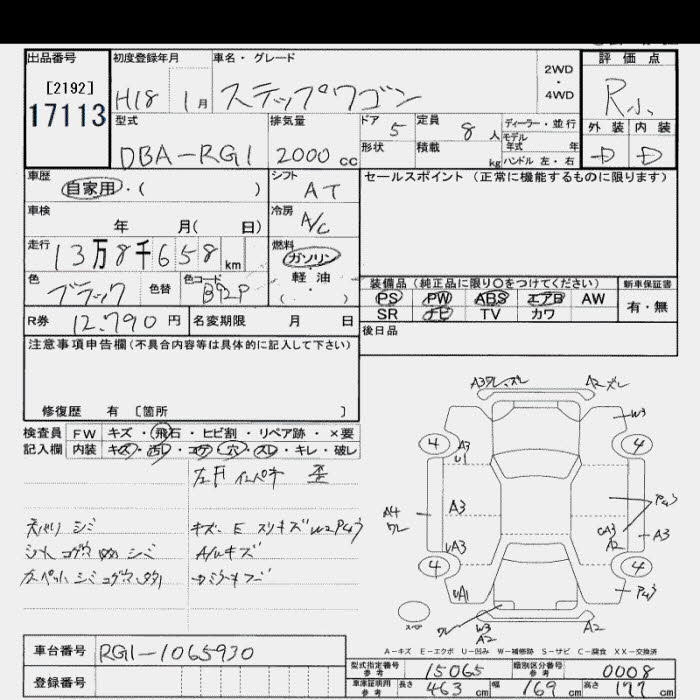 出品番号 初度登録年月 車名・グレード 2WD・4WD 評価点
[2192]
17113
H18 1月 ステップワゴン R小
型式 排気量 ドア 定員 ディーラー・並行 外装 内装
DBA-RG1 2000cc 5 8人 モデル年式 年 D D
形状 積載 kg ハンドル 左・右
車歴 シフト セールスポイント(正常に機能するものに限ります)
自家用・( ) AT
車検 冷房
年 月( 日) A/C
走行 燃料
13万8千658km ガソリン
軽・油
・( )
色 色替 色コード
ブラック B92P
装備品(純正品に限り○をつけてください) 新車保証書
PS PW ABS エアB AW 有・無
SR ナビ TV カワ
R券 12,790円 名変期限 月 日 後日品
注意事項申告欄(不具合内容等は具体的に記入して下さい)
修復歴 有 [箇所 ]
検査員 FW キズ・飛石・ヒビ割・リペア跡・×要
記入欄 内装 キズ・汚レ・コゲ・穴・スレ・キレ・破レ
左F インパネ 歪
天バリ シミ キズ、E スリキズ W2 Pカラ
シート コゲ穴 シミ A/Wキズ
カーペット シミ コゲ穴
A3ワレ、ズレ A2ズレ
W3
4 4
A3
U1
A4
ワレ
A3
Pカラ
UA3
UA3
A2
A3
4 4
UA1
Pカラ
スペア
ワレ W3
A2
A2
A-キズ E-エクボ U-凹み W-補修跡 S-サビ C-腐食 XX-交換済
車台番号 RG1-1065930
登録番号
型式指定番号 参考 15065 類別区分番号 参考 0008
車庫証明用 参考 長さ 463cm 幅 169cm 高さ 177cm